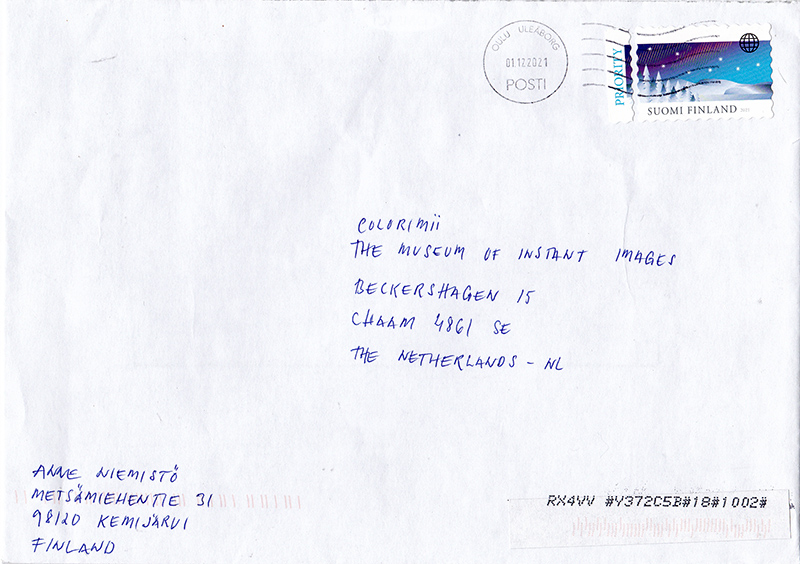 OULU ULEÅBORG
01.12.2021
POSTI
PRIORITY
SUOMI FINLAND 2021
COLOR/MII
THE MUSEUM OF INSTANT IMAGES
BECKERSHAGEN 15
CHAAM 4861 SE
THE NETHERLANDS - NL
ANNE NIEMISTÖ
METSÄMIEHENTIE 31
98120 KEMIJÄRVI
FINLAND
RX4VV #Y372C5B#18#1002#